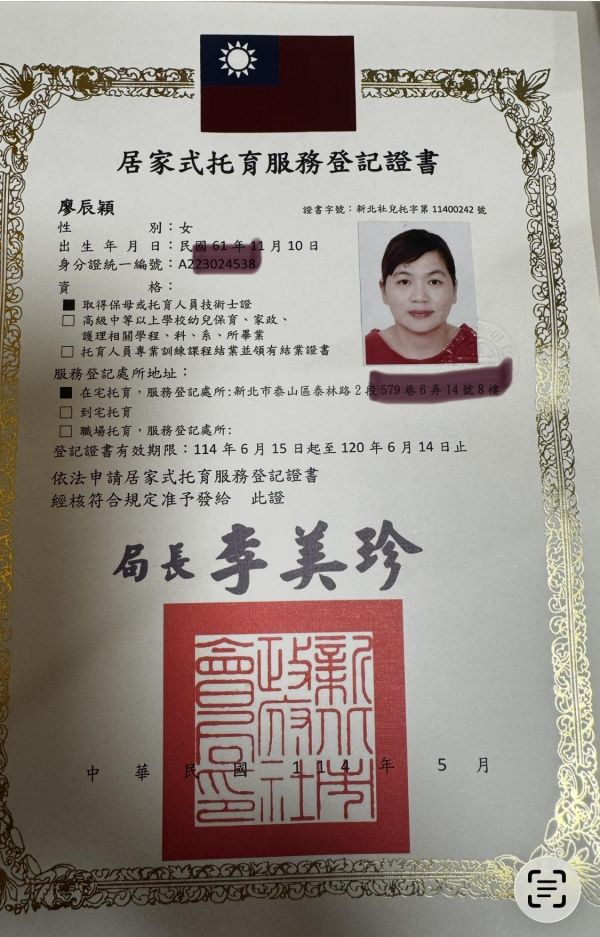 居家式托育服務登記證書
廖辰穎
證書字號：新北社兒托字第 11400242 號
性別：女
出生年月日：民國 月 10 日
身分證統一編號：
資格：
■ 取得保母或托育人員技術士證
□ 高級中等以上學校幼兒保育、家政、
護理相關學程、科、系、所畢業
□ 托育人員專業訓練課程結業並領有結業證書
服務登記處所地址：
■ 在宅托育，服務登記處所:新北市泰山區泰林路 2
□ 到宅托育
□ 職場托育，服務登記處所:
登記證書有效期限：114 年 6 月 15 日起至 120 年 6 月 14 日止
依法申請居家式托育服務登記證書
經核符合規定准予發給 此證
局長 李美珍
新北市政府社會局印
中華民國 114 年 5 月